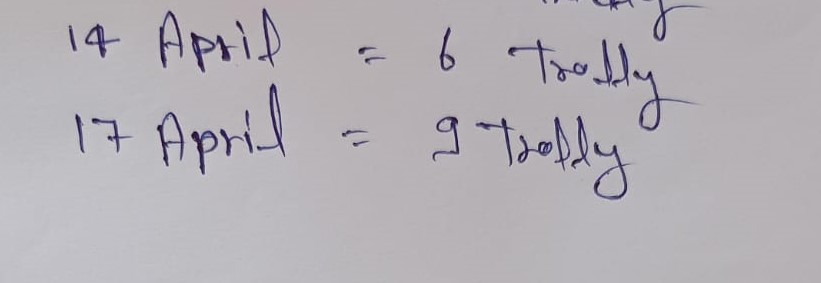 14 April = 6 Trolly
17 April = 9 Trolly